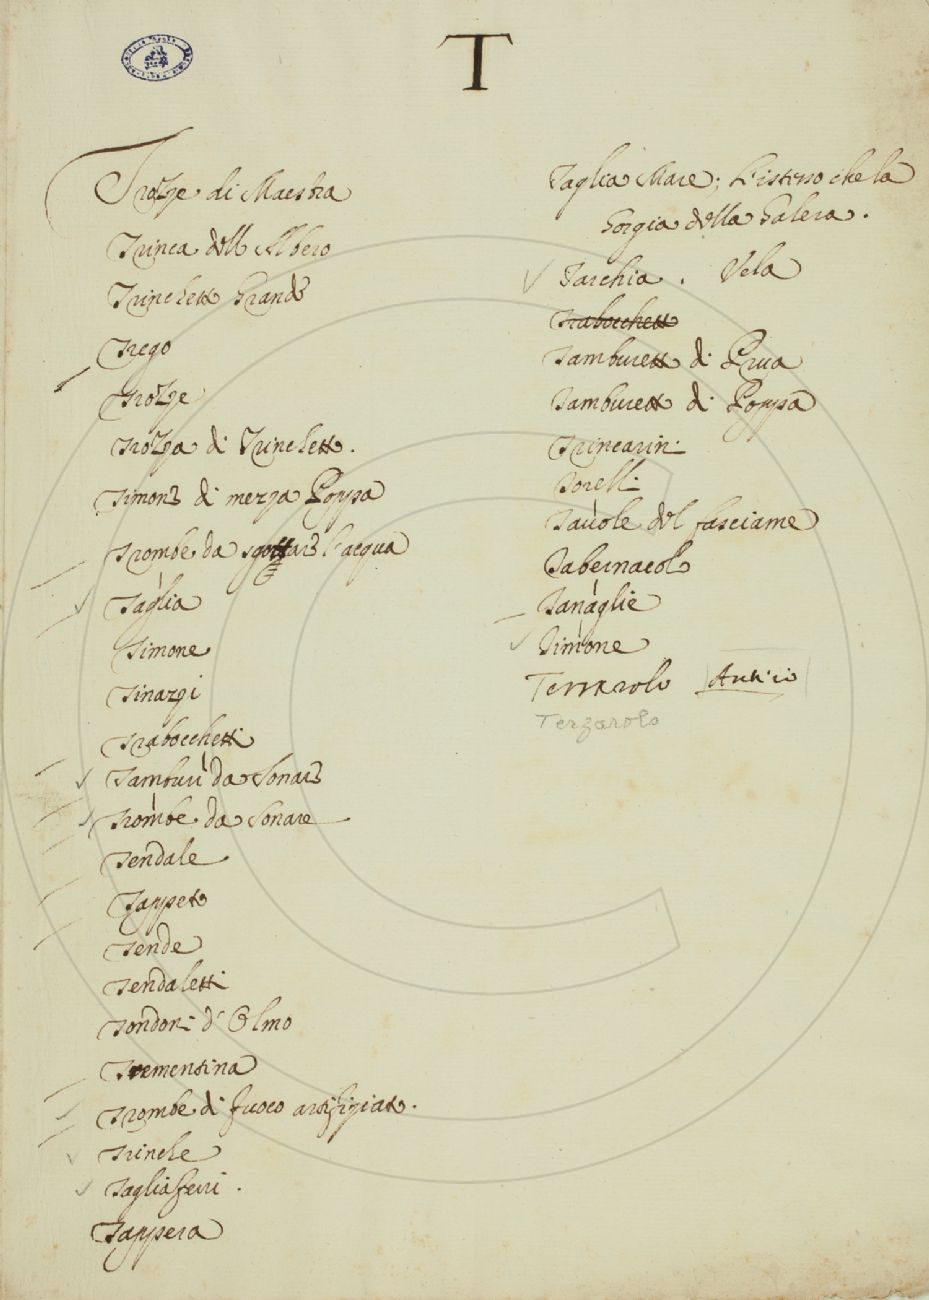 T
Trozze di Maestra
Trinca dell Albero
Trinchetto Grande
Trego
Trozze
Trozza di Trinchetto.
Timone di mezza Poppa
Trombe da sgottare l'acqua
Taglia
Timone
Tinazzi
Trabocchetti
Tamburi da Sonare
Trombe da Sonare
Tendale
Tappeto
Tende
Tendaletti
Tondoni d'Olmo
Trementina
Trombe di fuoco artifiziato.
Trincle
Tagliaferri.
Tappera
Taglia Mare; L'istesso che la
Gorgia della Galera.
Tarchia. Vela
Trabocchetto
Tamburetto di Prua
Tamburetto di Poppa
Trincarini
Torelli
Tavole del fasciame
Tabernacolo
Tanaglie
Timone
Terzarolo
Terzarolo